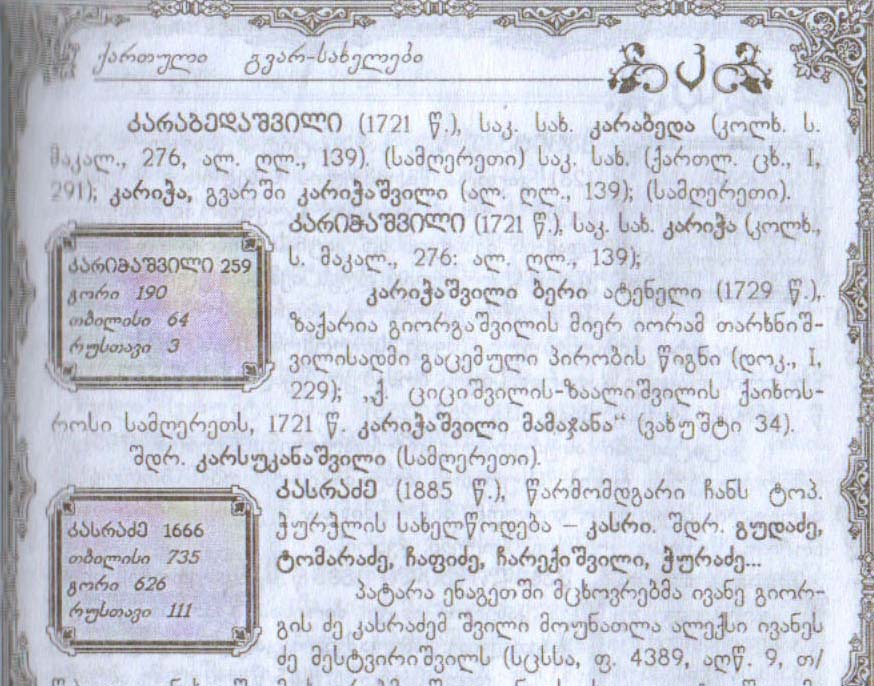 ქართული გვარ-სახელები
კ
ᲙᲐᲠᲐᲑᲔᲓᲐᲨᲕᲘᲚᲘ (1721 წ.), საკ. სახ. კარაბედა (კოლხ. ს.
მაკალ., 276, ალ. ღლ., 139). (სამღერეთი) საკ. სახ. (ქართლ. ცხ., I,
291); კარიჭა, გვარში კარიჭაშვილი (ალ. ღლ., 139); (სამღერეთი).
ᲙᲐᲠᲘᲭᲐᲨᲕᲘᲚᲘ (1721 წ.), საკ. სახ. კარიჭა (კოლხ.,
ს. მაკალ., 276: ალ. ღლ., 139);
ᲙᲐᲠᲘᲭᲐᲨᲕᲘᲚᲘ 259
გორი 190
თბილისი 64
რუსთავი 3
კარიჭაშვილი ბერი ატენელი (1729 წ.),
ზაქარია გიორგაშვილის მიერ იორამ თარხნიშ-
ვილისადმი გაცემული პირობის წიგნი (დოკ., I,
229); „ქ. ციციშვილის-ზაალიშვილის ქაიხოს-
როსი სამღერეთს, 1721 წ. კარიჭაშვილი მამაჯანა“ (ვახუშტი 34).
შდრ. კარსუკანაშვილი (სამღერეთი).
ᲙᲐᲡᲠᲐᲫᲔ (1885 წ.), წარმომდგარი ჩანს ტოპ.
ჭურჭლის სახელწოდება – კასრი. შდრ. გუდაძე,
ტომარაძე, ჩაფიძე, ჩარექიშვილი, ჭურაძე...
ᲙᲐᲡᲠᲐᲫᲔ 1666
თბილისი 735
გორი 626
რუსთავი 111
პატარა ენაგეთში მცხოვრებმა ივანე გიორ-
გის ძე კასრაძემ შვილი მოუნათლა ალექსი ივანეს
ძე მესტვირიშვილს (სცსსა, ფ. 4389, აღწ. 9, თ/